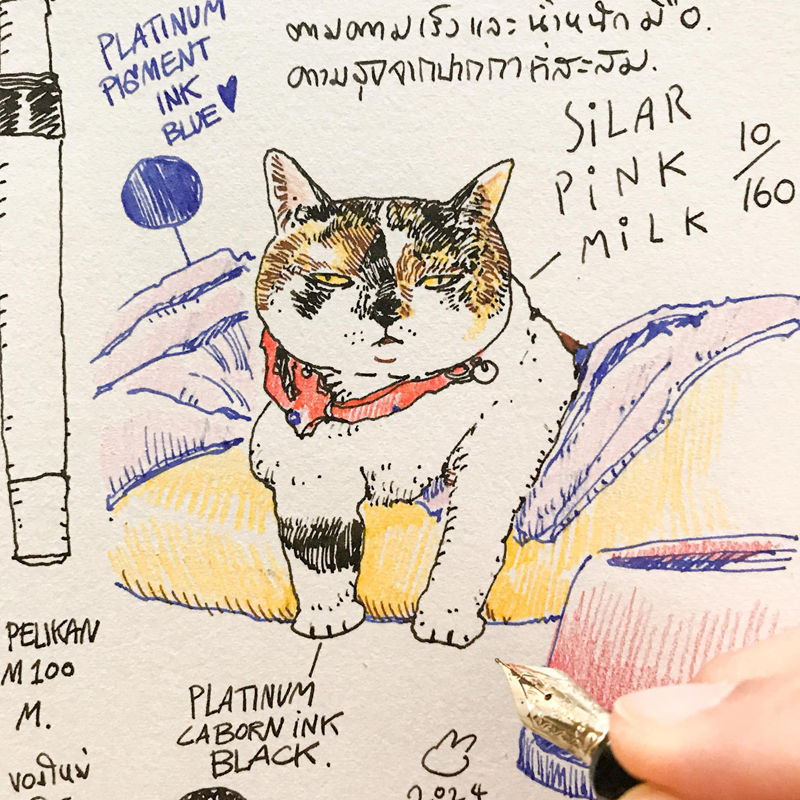 PLATINUM
PIGMENT
INK
BLUE
ตามตามเร็วและน้ำหนักมือ.
SiLAR
PiNK
MiLK
10/160
PELIKAN
M100
M.
ของใหม่
PLATINUM
CABORN iNK
BLACK.
2024